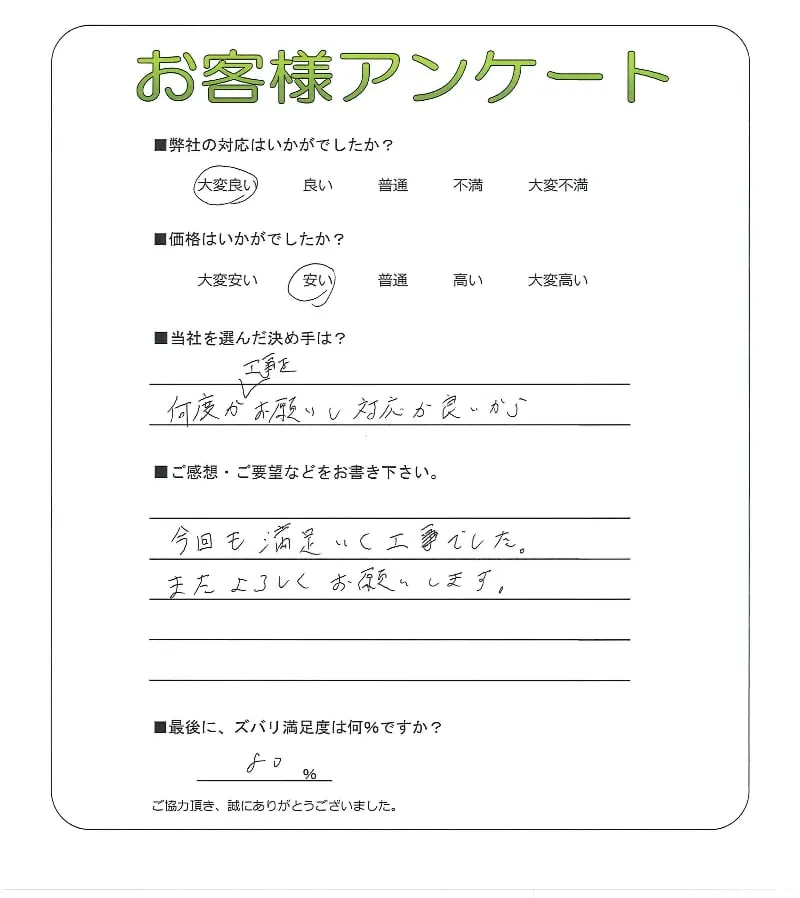 お客様アンケート
■弊社の対応はいかがでしたか？
大変良い 良い 普通 不満 大変不満
■価格はいかがでしたか？
大変安い 安い 普通 高い 大変高い
■当社を選んだ決め手は？
工事を
何度かお願いし対応が良いから
■ご感想・ご要望などをお書き下さい。
今回も満足いく工事でした。
またよろしくお願いします。
■最後に、ズバリ満足度は何%ですか？
80 %
ご協力頂き、誠にありがとうございました。